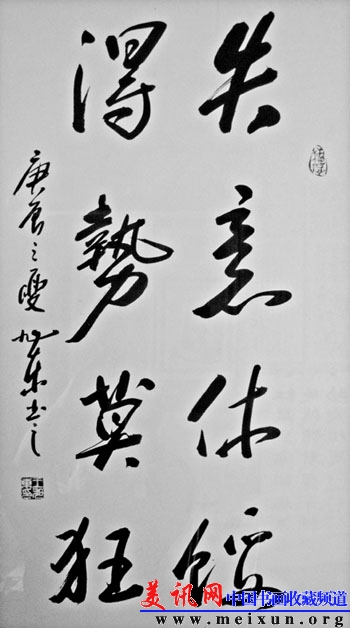 失意休餒
得勢莫狂
庚辰之夏 旭东书之
美讯网
中国书画收藏频道
www.meixun.org